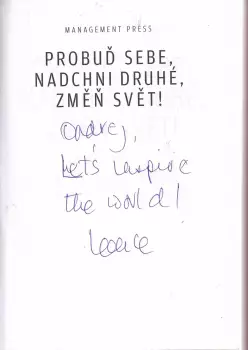 MANAGEMENT PRESS
PROBUĎ SEBE,
NADCHNI DRUHÉ,
ZMĚŇ SVĚT!
Ondřej,
Let's inspire
the world!